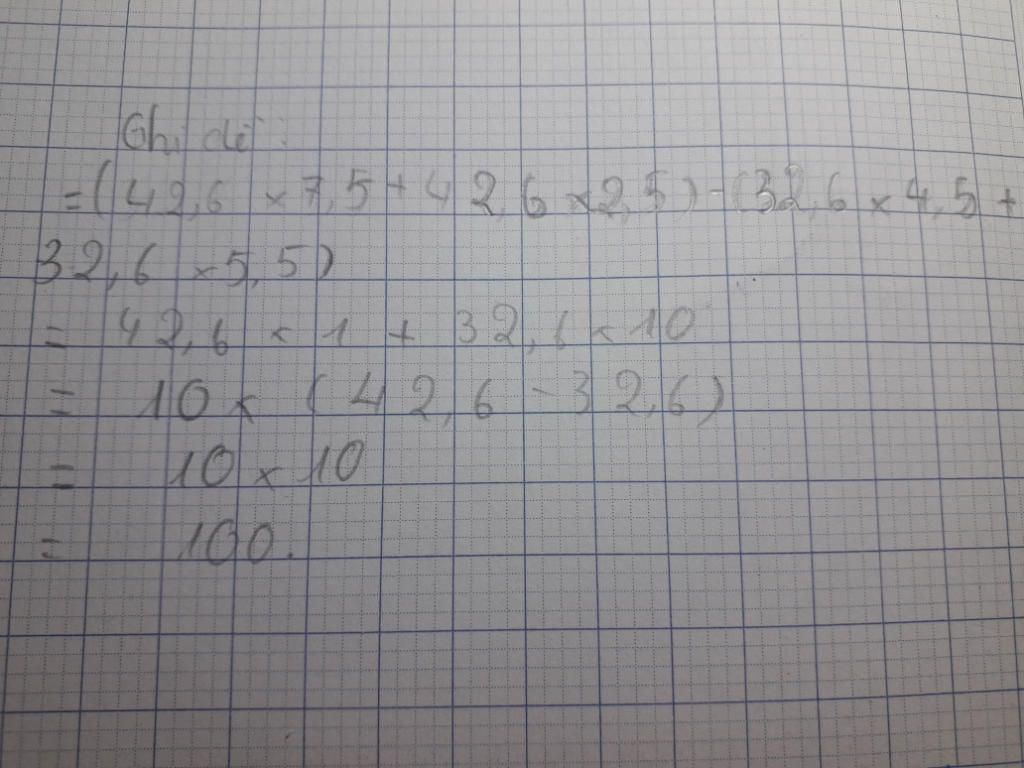 Ghi đề:
= (42,6 × 7,5 + 42,6 × 2,5) - (32,6 × 4,5 +
32,6 × 5,5)
= 42,6 × 1 + 32,6 × 10
= 10 × (42,6 - 32,6)
= 10 × 10
= 100.